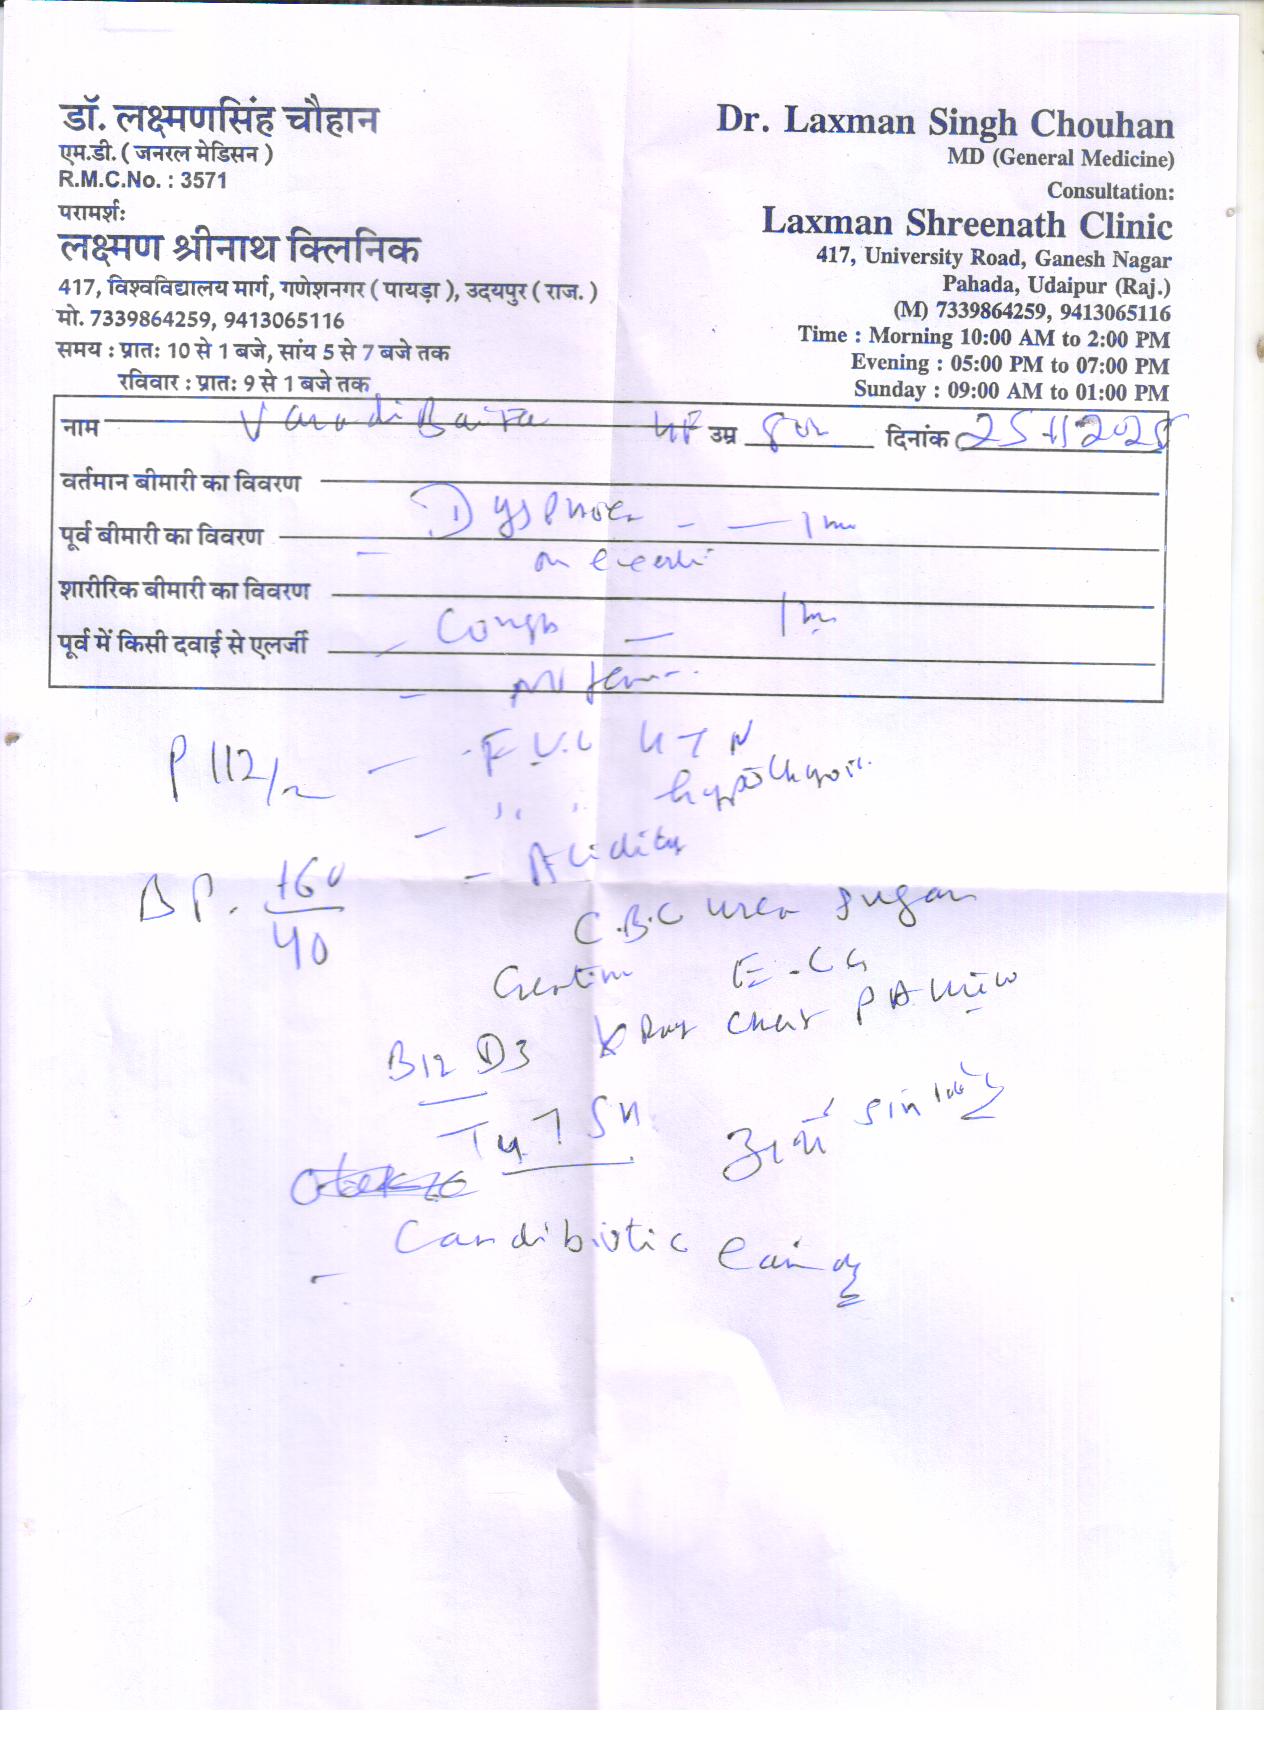 डॉ. लक्ष्मणसिंह चौहान
एम.डी. ( जनरल मेडिसन )
R.M.C.No. : 3571
परामर्श:
लक्ष्मण श्रीनाथ क्लिनिक
417, विश्वविद्यालय मार्ग, गणेशनगर ( पायड़ा ), उदयपुर ( राज. )
मो. 7339864259, 9413065116
समय : प्रातः 10 से 1 बजे, सांय 5 से 7 बजे तक
रविवार : प्रातः 9 से 1 बजे तक
Dr. Laxman Singh Chouhan
MD (General Medicine)
Consultation:
Laxman Shreenath Clinic
417, University Road, Ganesh Nagar
Pahada, Udaipur (Raj.)
(M) 7339864259, 9413065116
Time : Morning 10:00 AM to 2:00 PM
Evening : 05:00 PM to 07:00 PM
Sunday : 09:00 AM to 01:00 PM
नाम उम्र दिनांक
वर्तमान बीमारी का विवरण
Dyspnoea - - 1
पूर्व बीमारी का विवरण
- on
शारीरिक बीमारी का विवरण
Cough - 1
पूर्व में किसी दवाई से एलर्जी
P 112/
- F.U.C HTN
- " " hypothyroi
- Acidity
BP. 160/40
C.B.C urea sugar
E.C.G
B12 D3 X Ray Chest PA View
T4 TSH
- Candibiotic